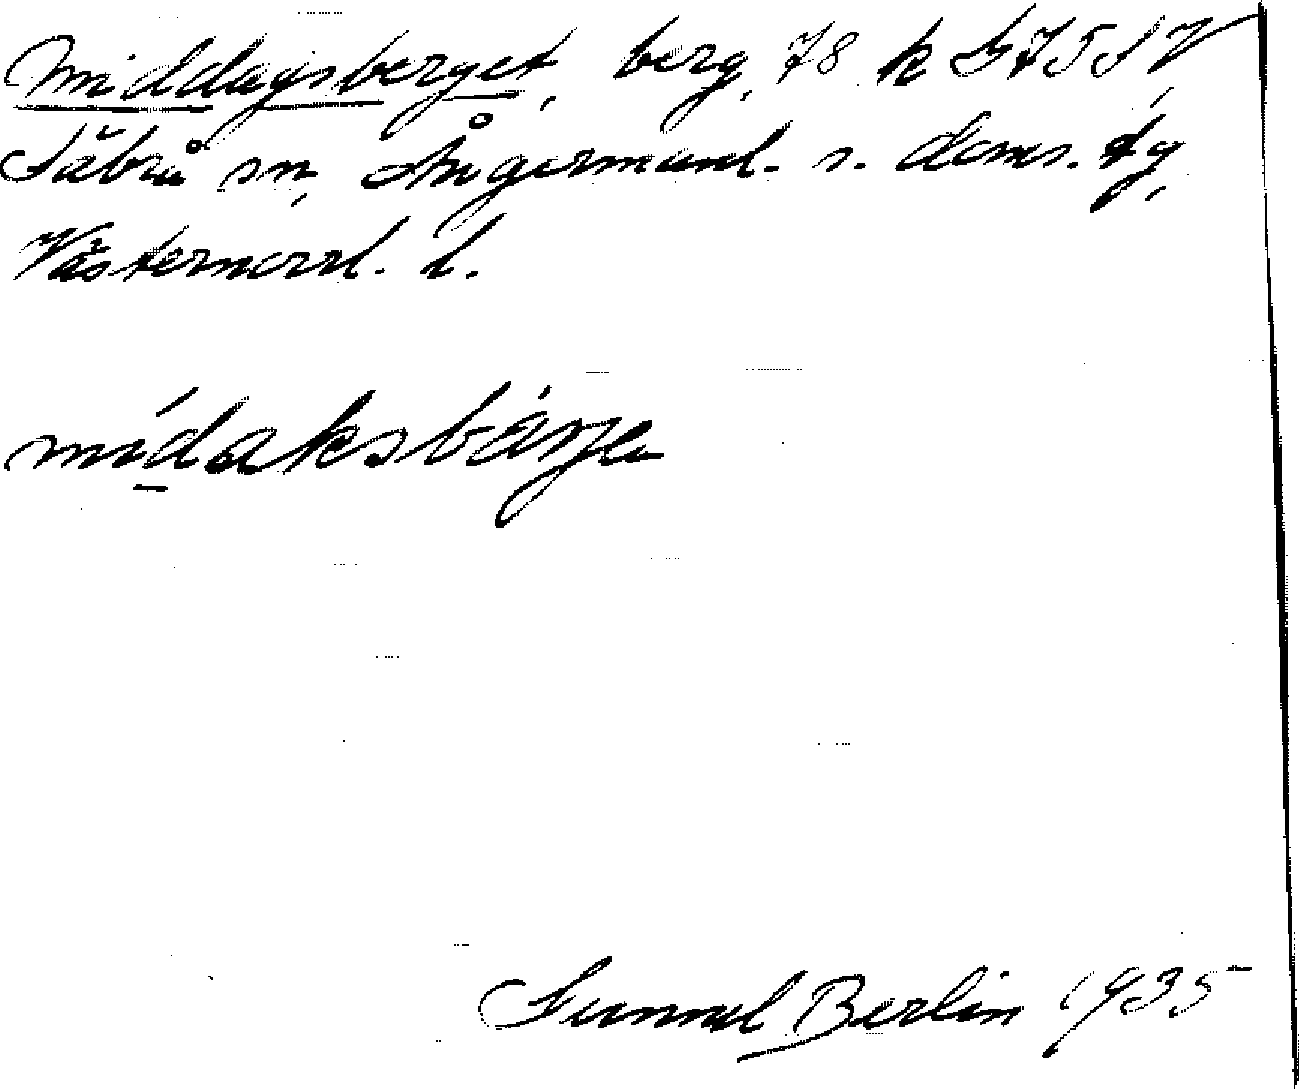 Middagsberget, berg, 78 k G 75 SV
Säbrå sn, Ångermanl. s. doms. ty,
Västernorrl. l.
mídaksbárje
Gunnel Berlin 1935